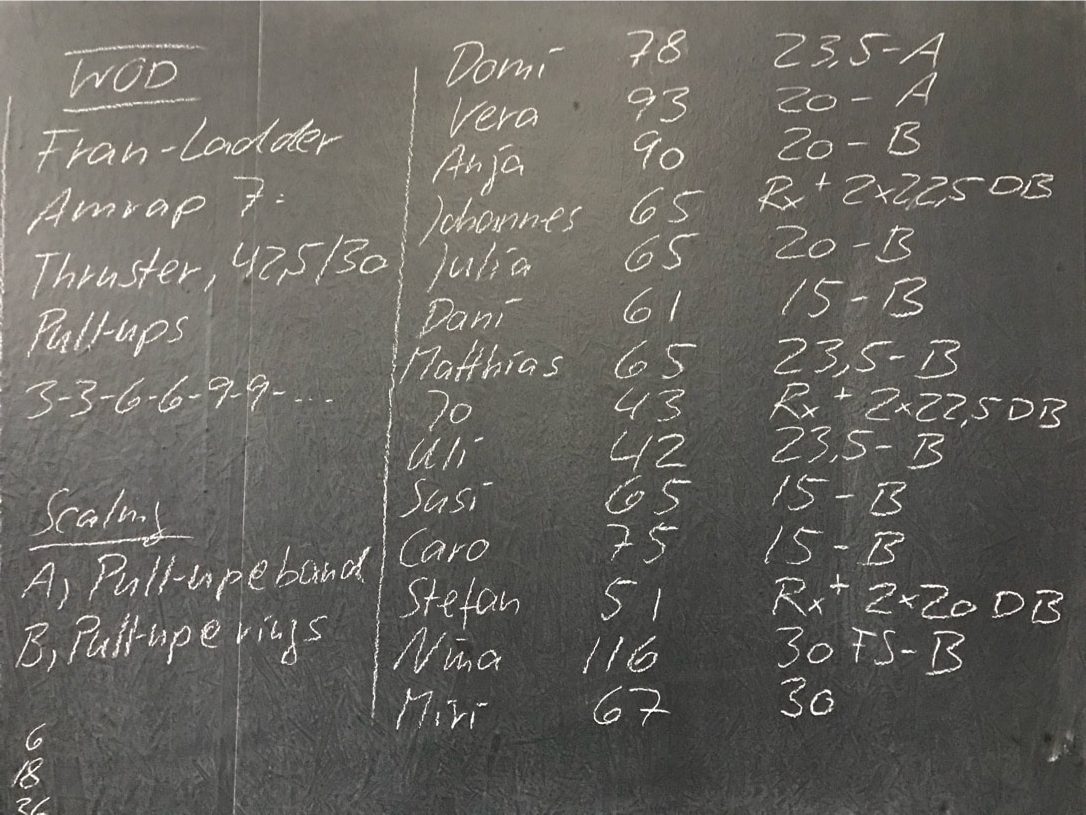 WOD
Fran-Ladder
Amrap 7:
Thruster, 42,5/30
Pull-ups
3-3-6-6-9-9-....
Scaling
A, Pull-up e band
B, Pull-up e rings
6
18
36
Domi 78 23,5-A
Vera 93 20-A
Anja 90 20-B
Johannes 65 Rx+ 2x22,5 DB
Julia 65 20-B
Dani 61 15-B
Matthias 65 23,5-B
Jo 43 Rx+ 2x22,5 DB
Uli 42 23,5-B
Susi 65 15-B
Caro 75 15-B
Stefan 51 Rx+ 2x20 DB
Nina 116 30 FS-B
Miri 67 30